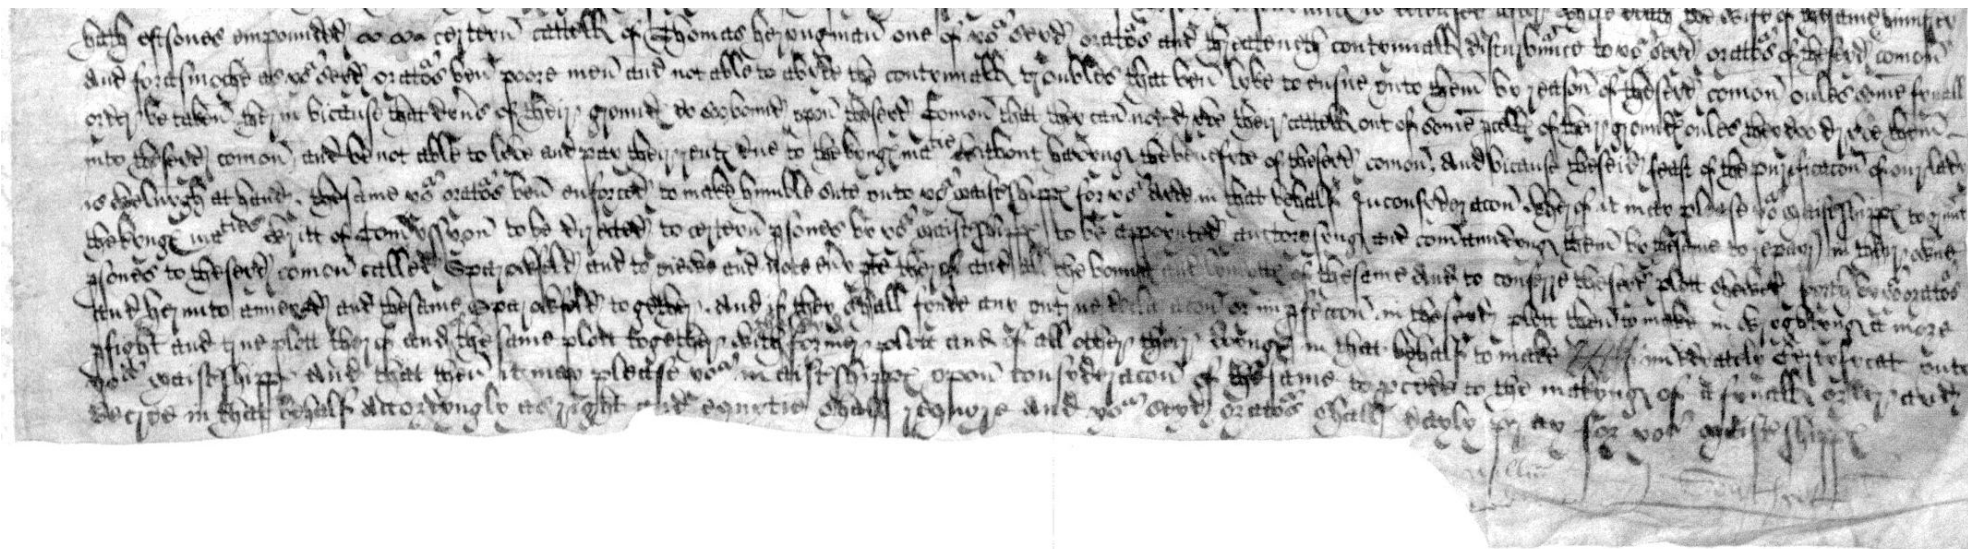 after whose death the wife of thesame
hath eftsones empounded certeyn cattell of Thomas heryngman one of yor seyd orators and thretenyth contynuall disturbance to yor seyd orators of theseyd comon
And forasmoche as yor seyd orators ben poore men and not able to abyde the contynuall troubles that ben lyke to ensue unto them by reason of theseyd comon onles some fynall
order be taken theryn bicause that dyvers of theyr grounds do so bound upon theseyd Comon that they can not dryve theyr cattell out of some pcell of theyr grounds onles they do dryve them
into theseyd comon, and be not able to lyve and pay theyr rents due to the kyngs matie wtout havyng the benefyte of theseyd comon. And bicause theseid feast of the purificacon of our lady
is welnygh at hand, thesame yor orators ben enforced to make humble sute unto yor maistshipps for yor ayde in that behalf In consyderacon wherof it may please yor maistshipps to graunt
the kyngs maties writt of Comyssyon to be dyrected to certeyn psones by yor maistshipps to be appoynted auctorysyng and comaundyng them by thesame to repayr in theyr owne
psones to theseyd comon called Sparowfeld and to viewe and note every pte therof and all the bounds and of thesame And to conferre theseyd plott shewed forth by yor orators
and herunto annexed and thesame Sparowfeld together, And if they shall fynde any untrue or impfeccon in theseyd plott then to make in wrytyng a more
pfight and true plott therof and the same plott together with former plott and of all other theyr doyngs in that behalf to make immedyately Certyfycat unto
yor maistshipps And that then it may please yor maistshipps upon consyderacon of thesame to pcede to the makyng of a fynall order and
decree in that behalf accordyngly as right and equytie shall requyre And yor seyd orators shall dayly pray for yor maistshipps